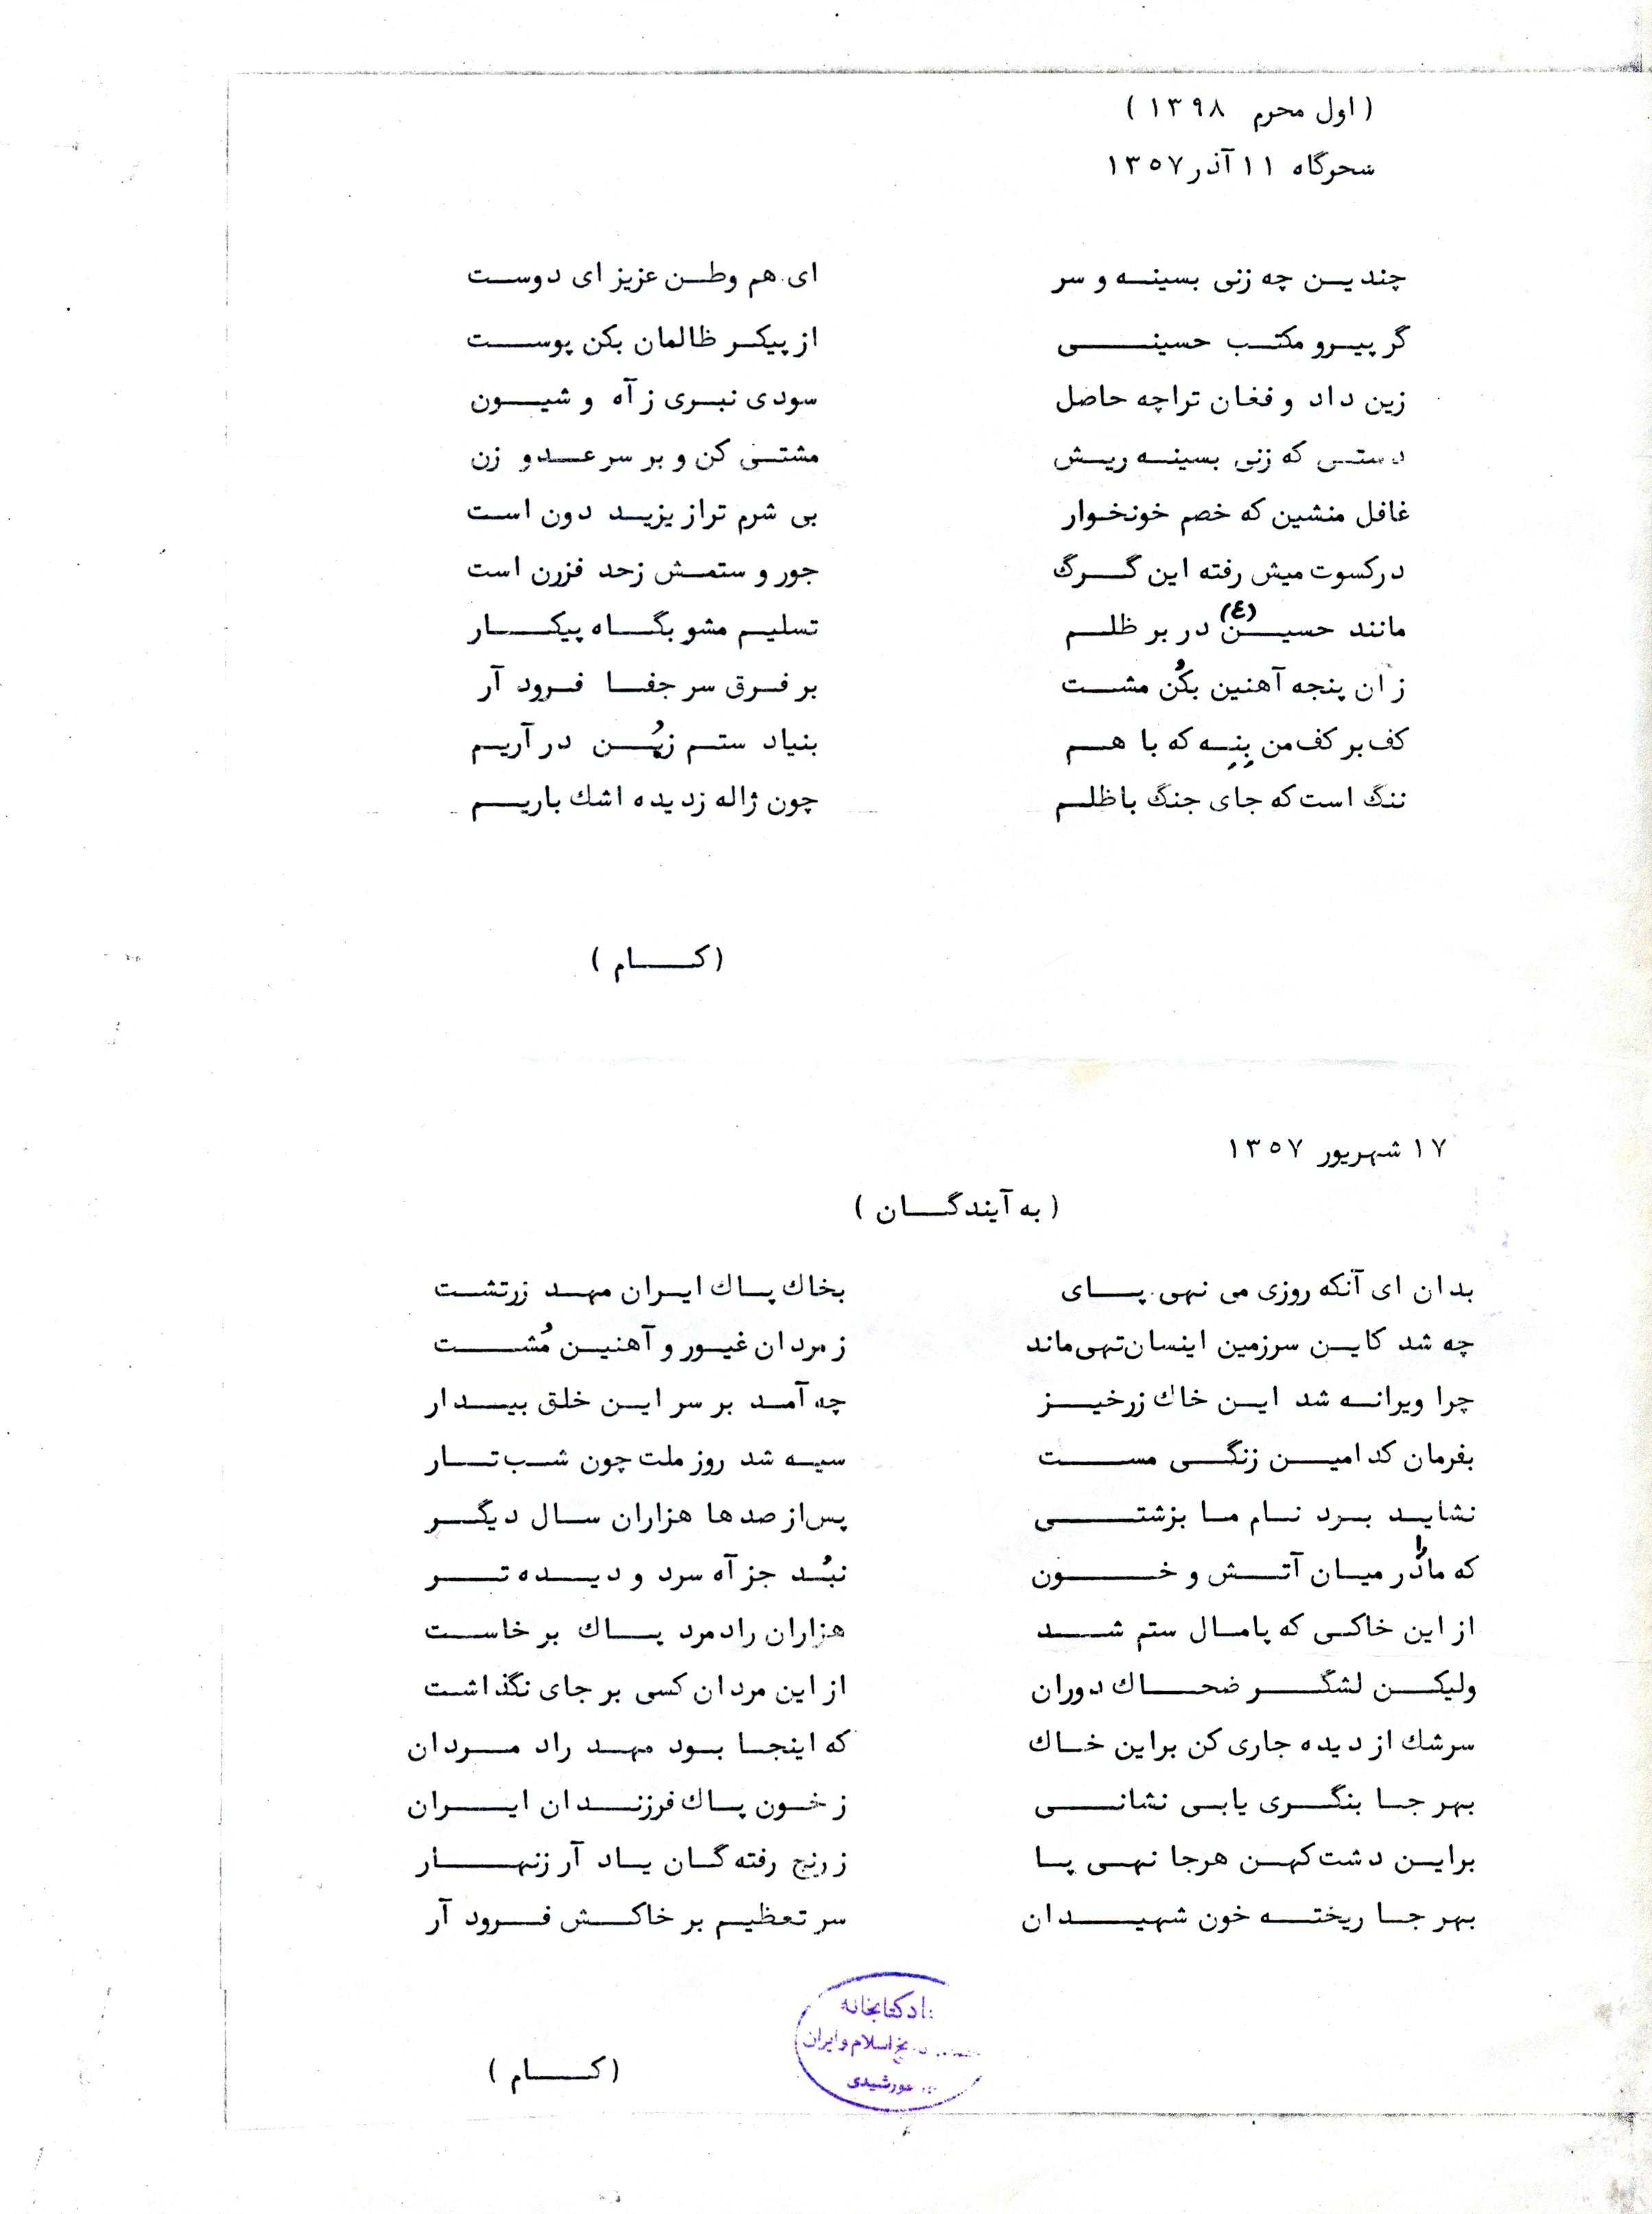 ( اول محرم ۱۳۹۸ )
سحرگاه ۱۱ آذر ۱۳۵۷
چندین چه زنی بسینه و سر ای هم وطن عزیز ای دوست
گر پیرو مکتب حسینی از پیکر ظالمان بکن پوست
زین داد و فغان ترا چه حاصل سودی نبری ز آه و شیون
دستی که زنی بسینه ریش مشتی کن و بر سر عدو زن
غافل منشین که خصم خونخوار بی شرم تر از یزید دون است
در کسوت میش رفته این گرگ جور و ستمش زحد فزرن است
مانند حسین (ع) در بر ظلم تسلیم مشو بگاه پیکار
زان پنجه آهنین بکُن مشت بر فرق سر جفا فرود آر
کف بر کف من بِنِه که با هم بنیاد ستم زبُن در آریم
ننگ است که جای جنگ با ظلم چون ژاله زدیده اشک باریم
( کام )
۱۷ شهریور ۱۳۵۷
( به آیندگان )
بدان ای آنکه روزی می نهی پای بخاک پاک ایران مهد زرتشت
چه شد کاین سرزمین اینسان تهی ماند ز مردان غیور و آهنین مُشت
چرا ویرانه شد این خاک زرخیز چه آمد بر سر این خلق بیدار
بفرمان کدامین زنگی مست سیه شد روز ملت چون شب تار
نشاید برد نام ما بزشتی پس از صدها هزاران سال دیگر
که ما را در میان آتش و خون نبُد جز آه سرد و دیده تر
از این خاکی که پامال ستم شد هزاران رادمرد پاک برخاست
ولیکن لشگر ضحاک دوران از این مردان کسی بر جای نگذاشت
سرشک از دیده جاری کن براین خاک که اینجا بود مهد راد مردان
بهر جا بنگری یابی نشانی ز خون پاک فرزندان ایران
براین دشت کهن هرجا نهی پا ز رنج رفته گان یاد آر زنهار
بهر جا ریخته خون شهیدان سر تعظیم بر خاکش فرود آر
کتابخانه
اسلام و ایران
( کام )